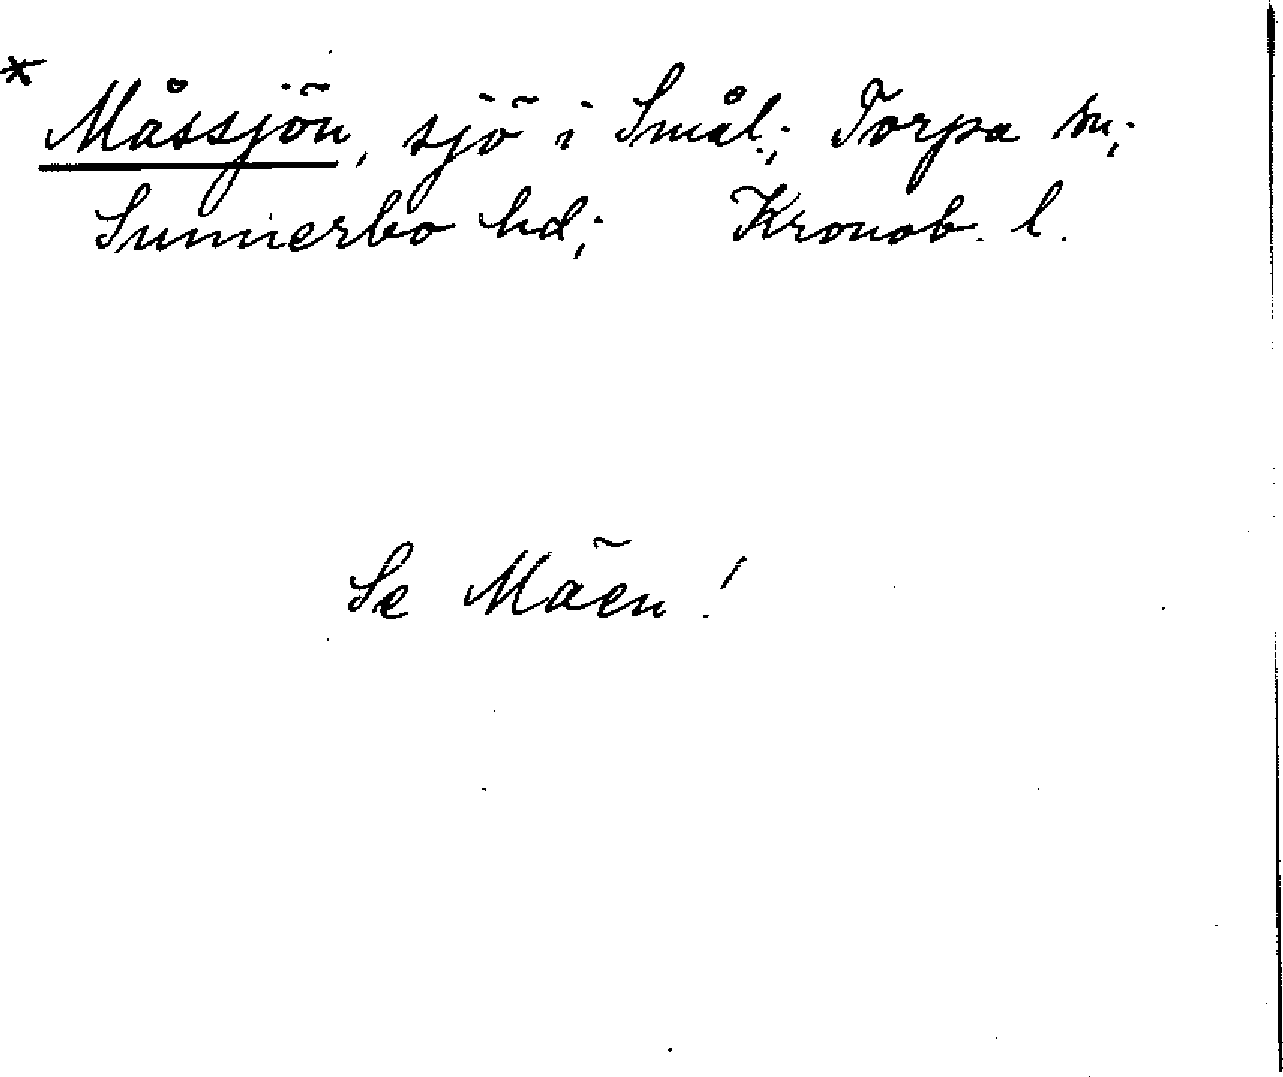 * Måssjön, sjö i Smål.; Torpa sn;
Sunnerbo hd; Kronob. l.
Se Mäen!